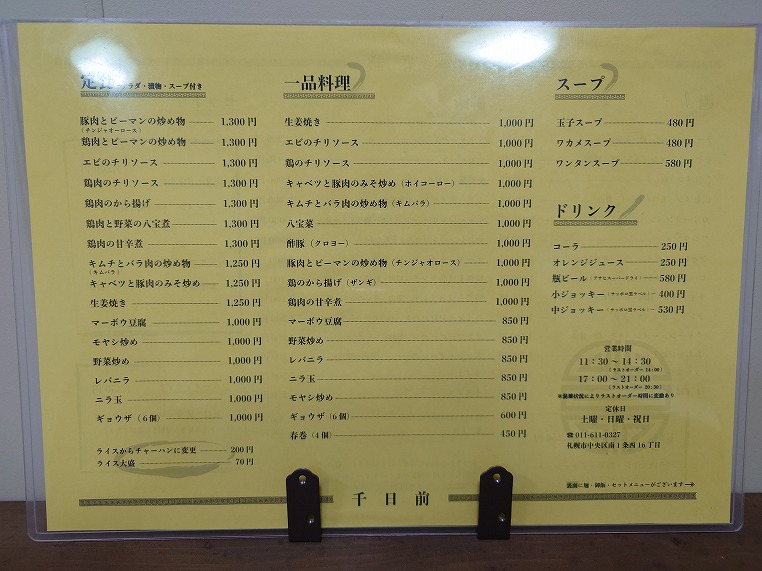 定食 サラダ・漬物・スープ付き
豚肉とピーマンの炒め物 1,300円
（チンジャオロース）
鶏肉とピーマンの炒め物 1,300円
エビのチリソース 1,300円
鶏肉のチリソース 1,300円
鶏肉のから揚げ 1,300円
鶏肉と野菜の八宝煮 1,300円
鶏肉の甘辛煮 1,300円
キムチとバラ肉の炒め物 1,250円
（キムバラ）
キャベツと豚肉のみそ炒め 1,250円
生姜焼き 1,250円
マーボウ豆腐 1,000円
モヤシ炒め 1,000円
野菜炒め 1,000円
レバニラ 1,000円
ニラ玉 1,000円
ギョウザ（6個） 1,000円
ライスからチャーハンに変更 200円
ライス大盛 70円
一品料理
生姜焼き 1,000円
エビのチリソース 1,000円
鶏のチリソース 1,000円
キャベツと豚肉のみそ炒め（ホイコーロー） 1,000円
キムチとバラ肉の炒め物（キムバラ） 1,000円
八宝菜 1,000円
酢豚（クロヨー） 1,000円
豚肉とピーマンの炒め物（チンジャオロース） 1,000円
鶏のから揚げ（ザンギ） 1,000円
鶏肉の甘辛煮 1,000円
マーボウ豆腐 850円
野菜炒め 850円
レバニラ 850円
ニラ玉 850円
モヤシ炒め 850円
ギョウザ（6個） 600円
春巻（4個） 450円
スープ
玉子スープ 480円
ワカメスープ 480円
ワンタンスープ 580円
ドリンク
コーラ 250円
オレンジジュース 250円
瓶ビール（アサヒスーパードライ） 580円
小ジョッキー（サッポロ黒ラベル） 400円
中ジョッキー（サッポロ黒ラベル） 530円
営業時間
11：30～14：30
（ラストオーダー 14：00）
17：00～21：00
（ラストオーダー 20：30）
※営業状況によりラストオーダー時間に変動あり
定休日
土曜・日曜・祝日
☎011-611-0327
札幌市中央区南1条西16丁目
裏面に麺・御飯・セットメニューがございます→
千日前